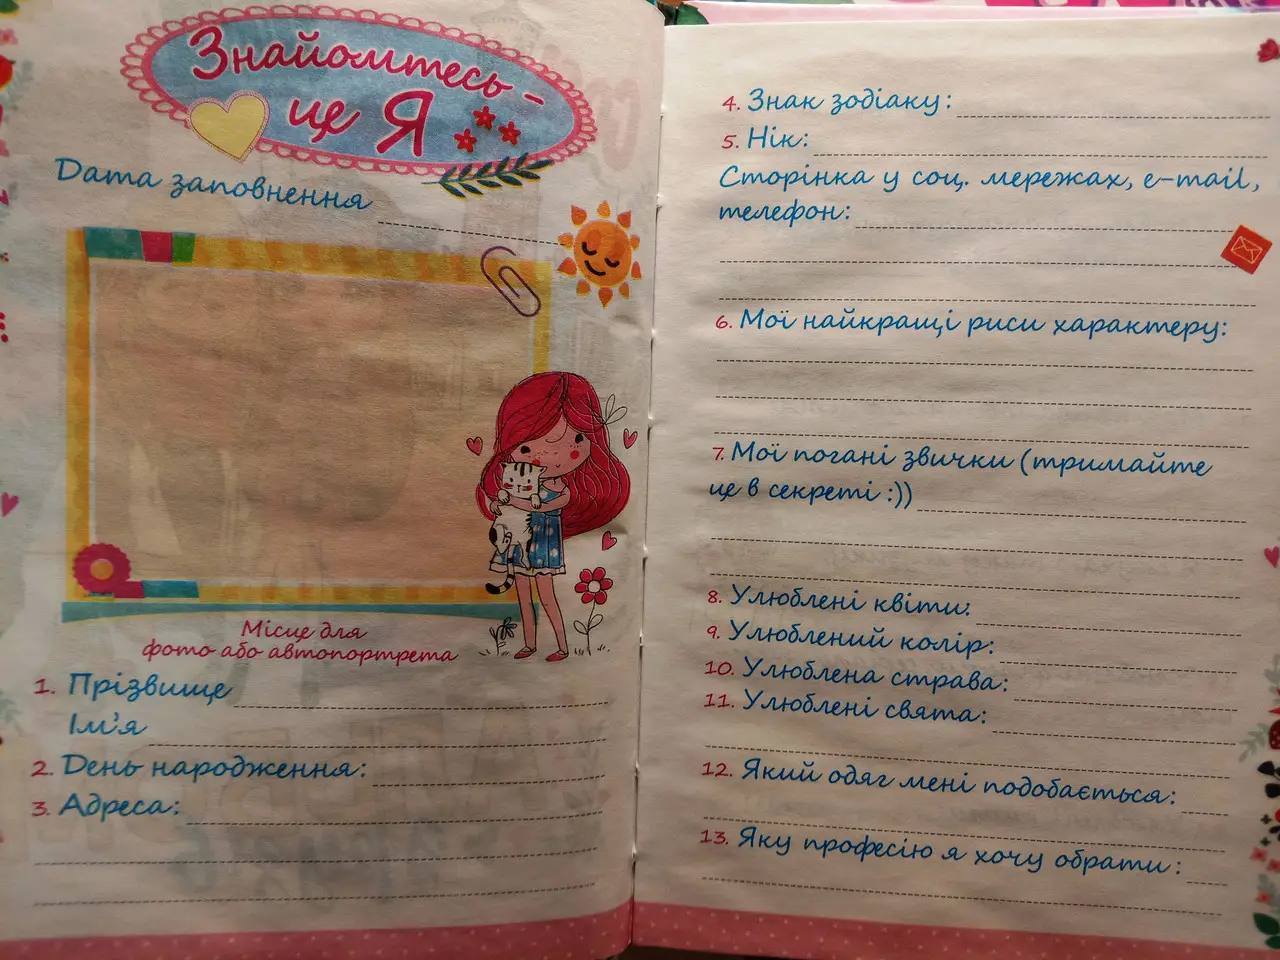 Знайомтесь -
це Я
Дата заповнення
Місце для
фото або автопортрета
1. Прізвище
Ім'я
2. День народження:
3. Адреса:
4. Знак зодіаку:
5. Нік:
Сторінка у соц. мережах, e-mail,
телефон:
6. Мої найкращі риси характеру:
7. Мої погані звички (тримайте
це в секреті :))
8. Улюблені квіти:
9. Улюблений колір:
10. Улюблена страва:
11. Улюблені свята:
12. Який одяг мені подобається:
13. Яку професію я хочу обрати: